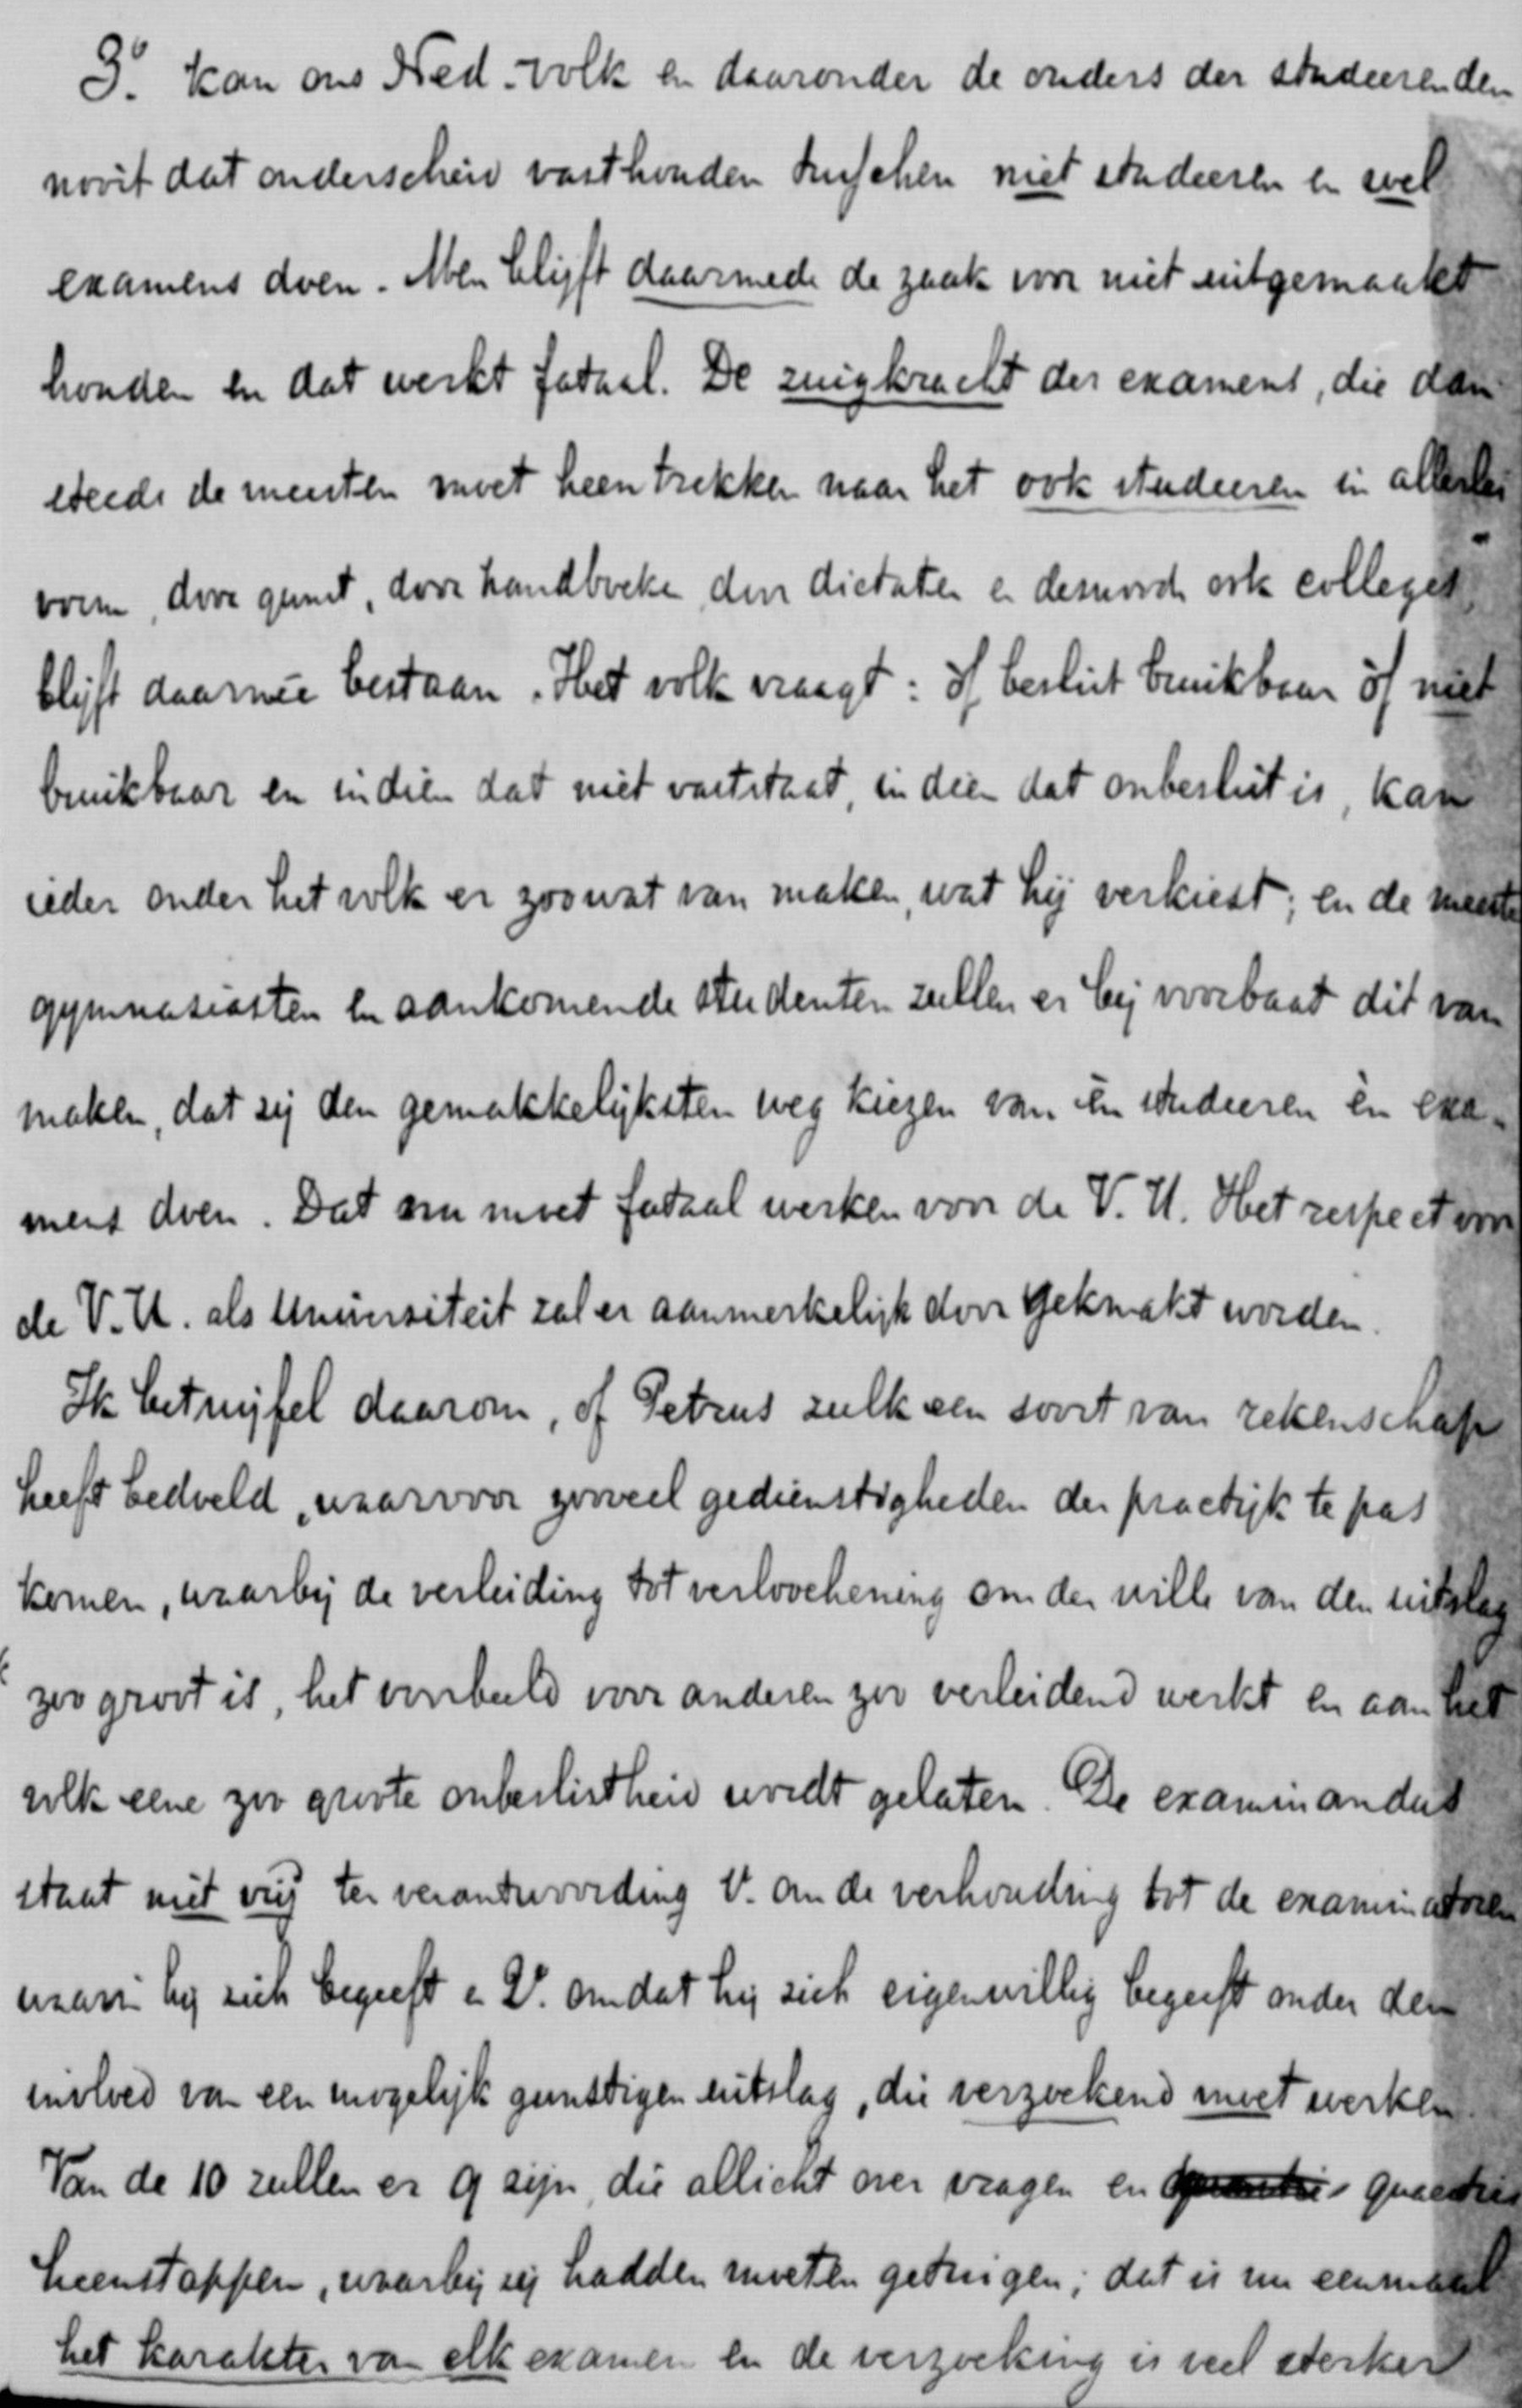 3.° kan ons Ned.-volk en daaronder de ouders der studeerenden
nooit dat onderscheid vasthouden tusschen niet studeeren en wel
examens doen. Men blijft daarmede de zaak voor niet uitgemaakt
houden en dat werkt fataal. De zuigkracht der examens, die dan
steeds de meesten moet heentrekken naar het ook studeeren in allerlei
vorm, door gunst, door handboeken, den dictaten en desnoods ook colleges,
blijft daarmee bestaan. Het volk vraagt: òf beslist bruikbaar òf niet
bruikbaar en indien dat niet vaststaat, indien dat onbeslist is, kan
ieder onder het volk er zoowat van maken, wat hij verkiest; en de meeste
gymnasiasten en aankomende studenten zullen er bij voorbaat dit van
maken, dat zij den gemakkelijksten weg kiezen van èn studeeren èn exa-
mens doen. Dat nu moet fataal werken voor de V. U. Het respect voor
de V. U. als Universiteit zal er aanmerkelijk door geknakt worden.
Ik betwijfel daarom, of Petrus zulk een soort van rekenschap
heeft bedoeld, waarvoor zooveel gedienstigheden der practijk te pas
komen, waarbij de verleiding tot verloochening om der wille van den uitslag
zoo groot is, het voorbeeld voor anderen zoo verleidend werkt en aan het
volk eene zoo groote onbeslistheid wordt gelaten. De examinandus
staat niet vrij ter verantwoording 1°. om de verhouding tot de examinatoren
waarin hij zich begeeft en 2°. omdat hij zich eigenwillig begeeft onder den
invloed van een mogelijk gunstigen uitslag, die verzoekend moet werken.
Van de 10 zullen er 9 zijn, die allicht over vragen en quaesties
heenstappen, waarbij zij hadden moeten getuigen; dat is nu eenmaal
het karakter van elk examen en de verzoeking is veel sterker